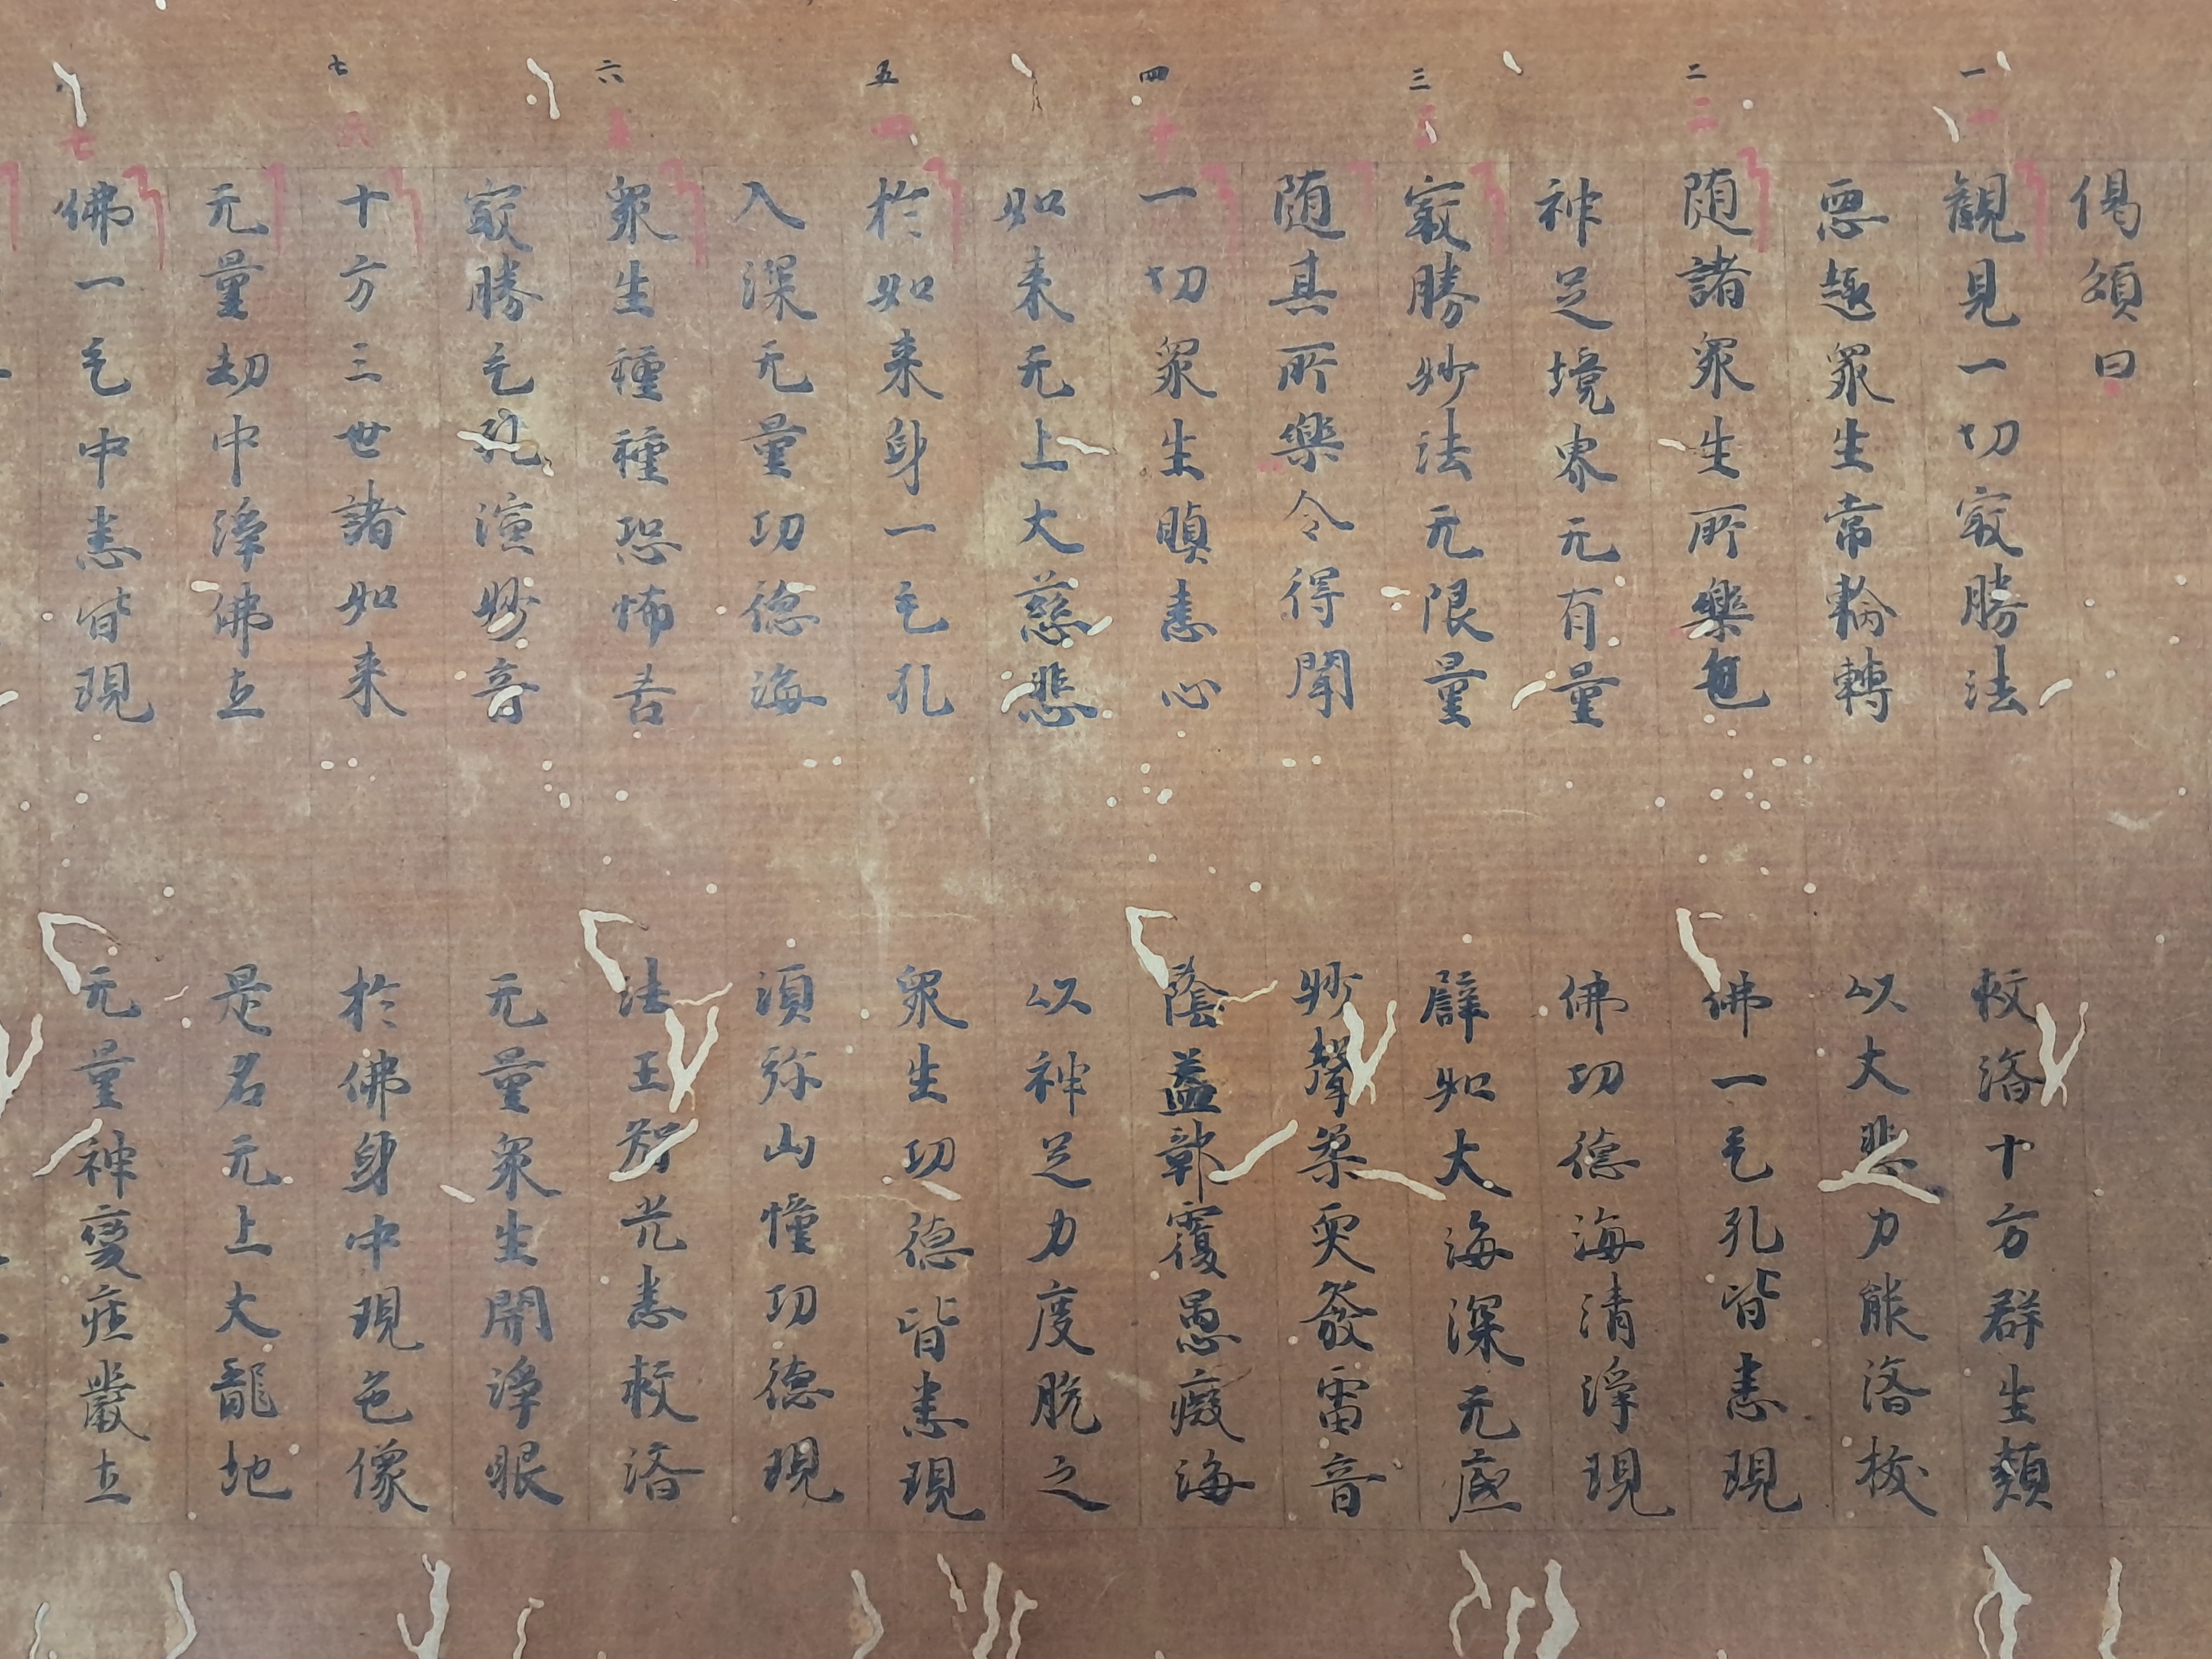 偈頌曰
一
一
觀見一切㝡勝法　救濟十方群生類
惡趣衆生常輪轉　以大悲力能濟拔
二
二
随諸衆生所樂色　佛一毛孔皆悉現
神足境界无有量　佛功德海清淨現
三
三
㝡勝妙法无限量　譬如大海深无底
随其所樂令得聞　妙聲柔耎發雷音
四
十
一切衆生瞋恚心　蔭蓋鄣覆愚癡海
如来无上大慈悲　以神足力度脱之
五
四
於如来身一毛孔　衆生功德皆悉現
入深无量功德海　須弥山幢功德現
六
五
衆生種種恐怖苦　法王智光悉救濟
㝡勝毛孔演妙音　无量衆生開淨眼
七
六
十方三世諸如来　於佛身中現色像
无量劫中淨佛土　是名无上大龍地
七
佛一毛中悉皆現　无量神變莊嚴土